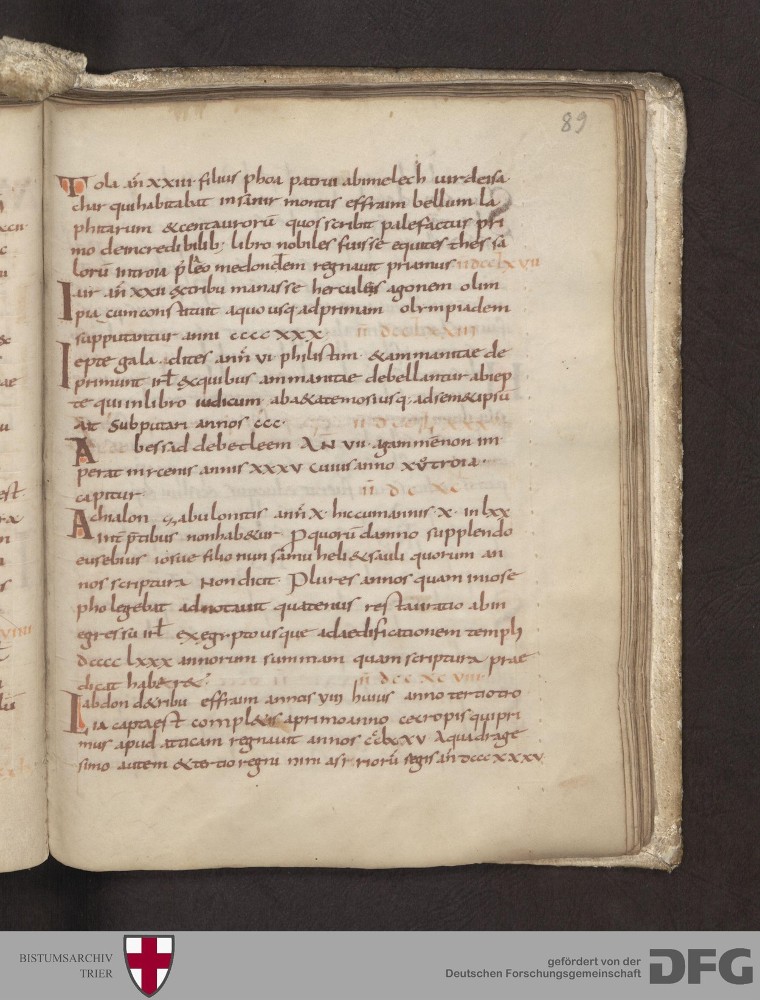 89
Tola an̄ xxiii filius phoa patrui abimelech uir deisa
char qui habitabat in sanir montis effraim bellum la
phitarum &centaurorū quos scribit palefactus pri
mo deincredibilib; libro nobiles fuisse equites thes sa
lorū introia p̄ leo medondem regnauit priamus ii dcclxvii
Iair an̄ xxii &tribu manasse hercules agonem olim
pia cum constituit aquo usq adprimam olympiadem
supputantur anni cccc xxx ii dcclxxiiii
Iepte gala adites ann̄ vi philistim &ammanitae de
primunt irl̄ &quibus ammanitae debellantur abiep
te qui inlibro iudicum aba&atemoisi usq adsem&ipsū
ait subputari annos ccc
Abessad debetleem AN̄ vii agammenon im
perat mycenis annis xxxv cuius anno xv troia
capitur ii d c xc
Achialon zabulonitis ann̄ x hic cum annis x in lxx
int̄ p̄tibus non hab&ur Pro quorū damno supplendo
eusebius iosue filio nun samu heli &sauli quorum an
nos scriptura Non dicit Plures annos quam iniose
pho legebat adnotauit quatenus restauratio abin
egressu irl̄ exegypto usque adaedificationem templi
dcccc lxxx annorum summam quam scriptura prae
dicat haber& ii dcc xc viii
Labdon d&ribu effraim annos viii huius anno tertio tro
Iia capta est compl&is aprimo anno cecropis qui pri
mus apud atticam regnauit annos ccclxxv Aquadrage
simo autem &tertio regni nini assyriorū regis an̄ dccc xxxv
BISTUMSARCHIV
TRIER
gefördert von der
Deutschen Forschungsgemeinschaft
DFG